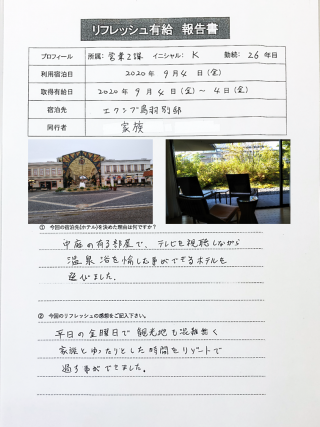 リフレッシュ有給 報告書
プロフィール 所属: 営業2課 イニシャル: K 勤続: 26年目
利用宿泊日 2020年 9月 4日(金)
取得有給日 2020年 9月 4日(金) ~ 4日(金)
宿泊先 エクシブ鳥羽別邸
同行者 家族
① 今回の宿泊先(ホテル)を決めた理由は何ですか?
中庭の有る部屋で、テレビを視聴しながら
温泉浴を愉しむ事ができるホテルを
選びました。
② 今回のリフレッシュの感想をご記入下さい。
平日の金曜日で観光地も混雑無く
家族とゆったりとした時間をリゾートで
過す事ができました。